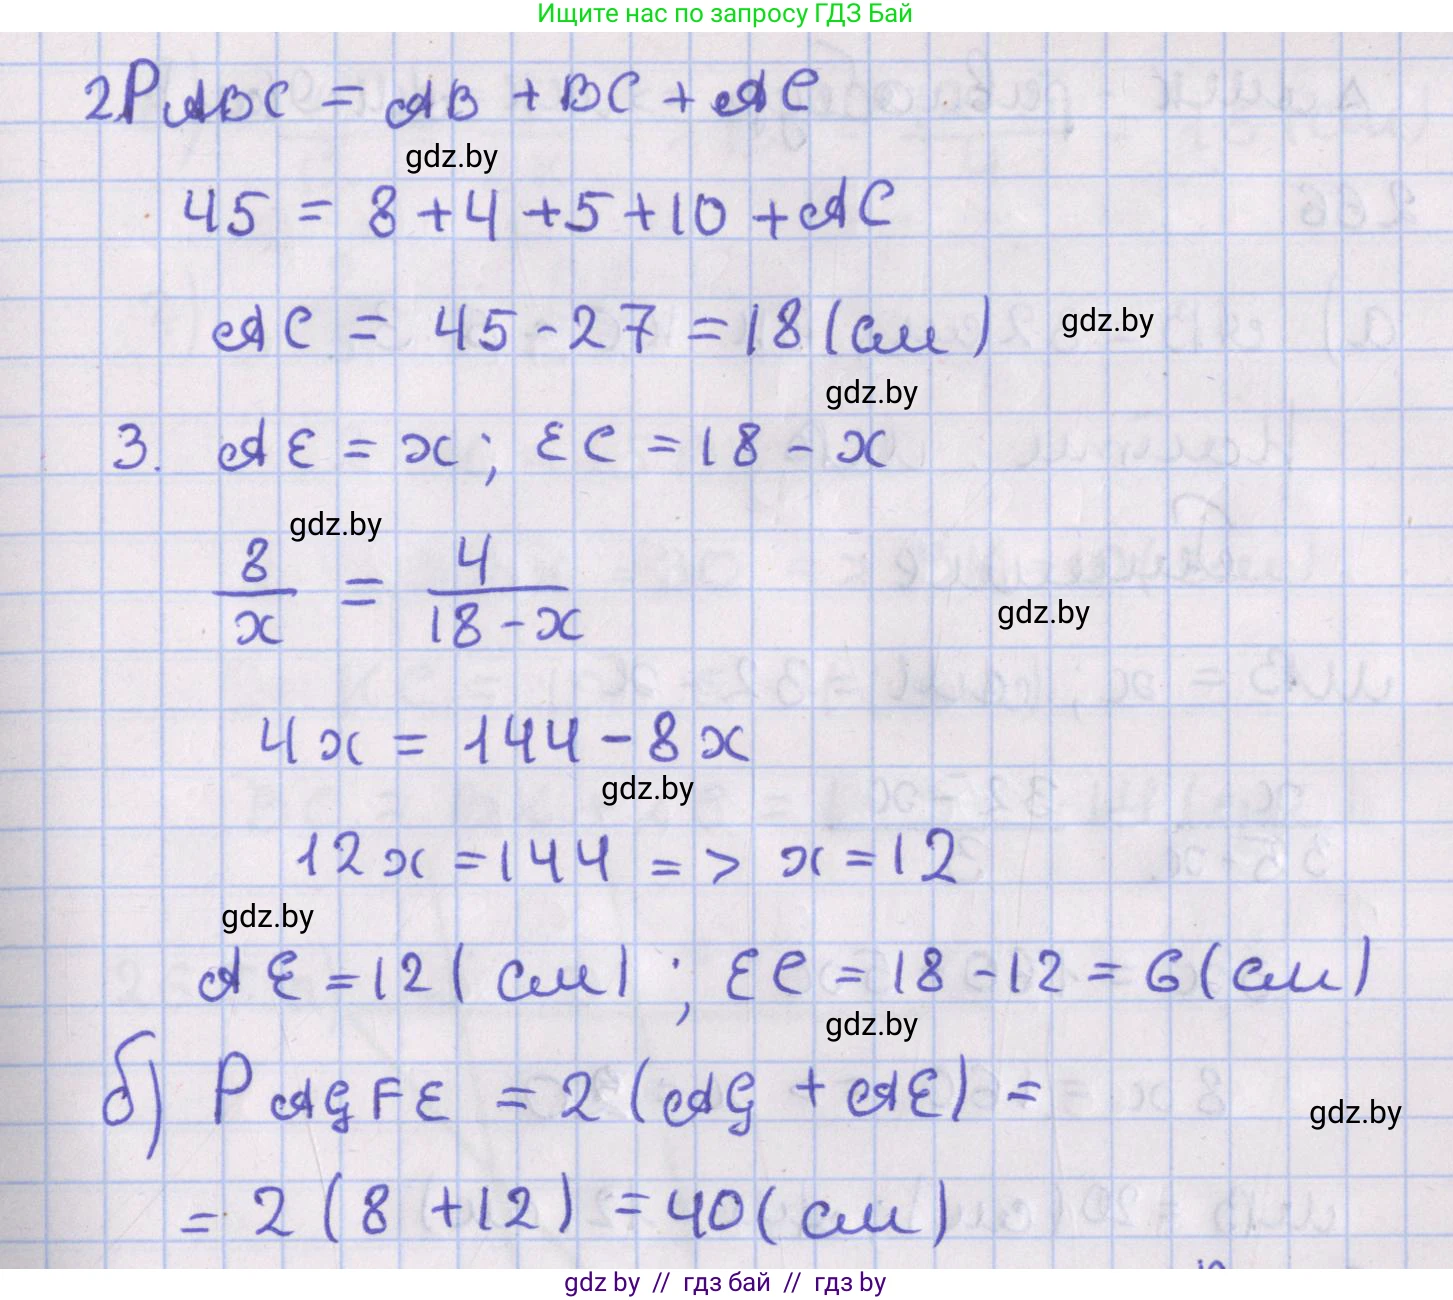 Ищите нас по запросу ГДЗ Бай
2 PABC = AB + BC + AC
gdz.by
45 = 8 + 4 + 5 + 10 + AC
AC = 45 - 27 = 18 (см)
gdz.by
gdz.by
3. AE = x; EC = 18 - x
gdz.by
8/x = 4/(18 - x)
gdz.by
4x = 144 - 8x
gdz.by
12x = 144 => x = 12
gdz.by
AE = 12 (см); EC = 18 - 12 = 6 (см)
gdz.by
б) PAGFE = 2 (AG + AE) =
gdz.by
= 2 (8 + 12) = 40 (см)
gdz by // гдз бай // гдз by